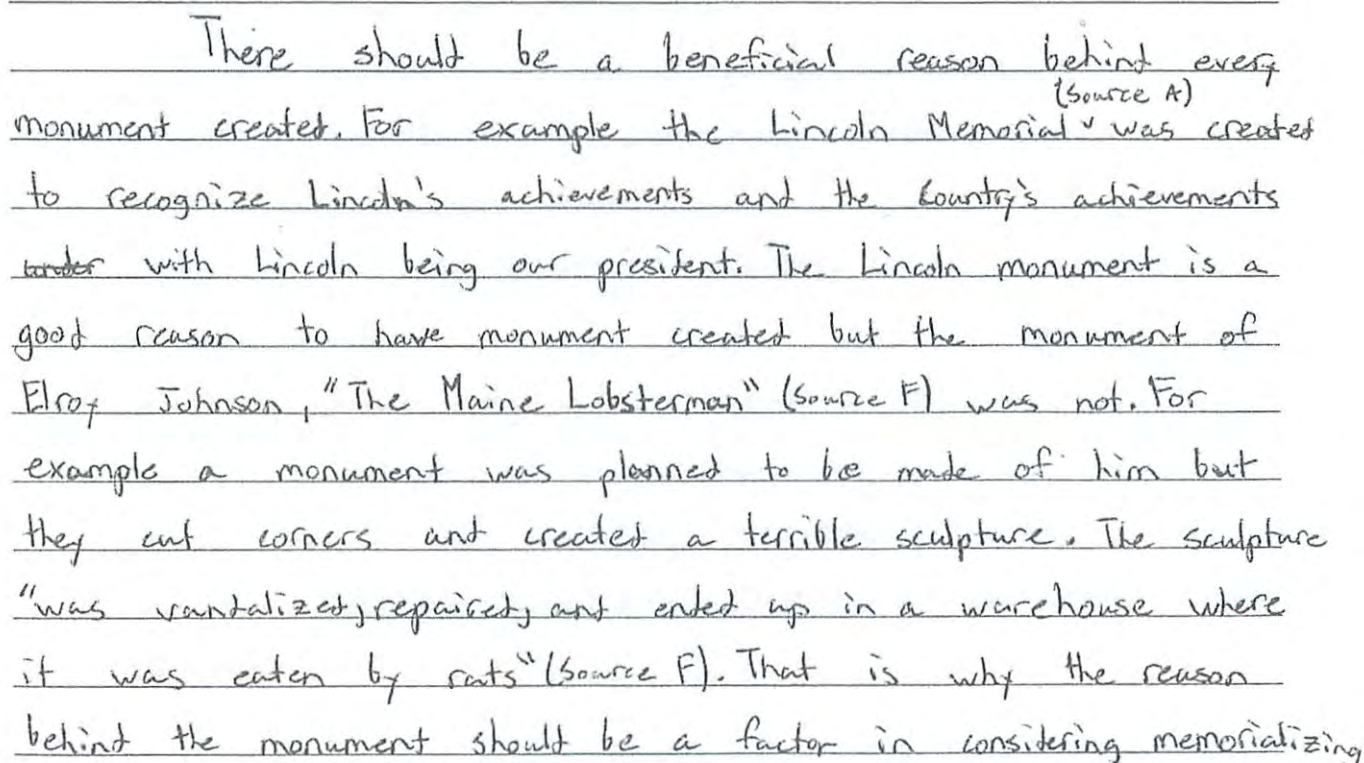 There should be a beneficial reason behind every
(Source A)
monument created. For example the Lincoln Memorial ˅ was created
to recognize Lincoln's achievements and the Country's achievements
with Lincoln being our president. The Lincoln monument is a
good reason to have monument created but the monument of
Elroy Johnson, "The Maine Lobsterman" (Source F) was not. For
example a monument was planned to be made of him but
they cut corners and created a terrible sculpture. The sculpture
"was vandalized, repaired, and ended up in a warehouse where
it was eaten by rats" (Source F). That is why the reason
behind the monument should be a factor in considering memorializing